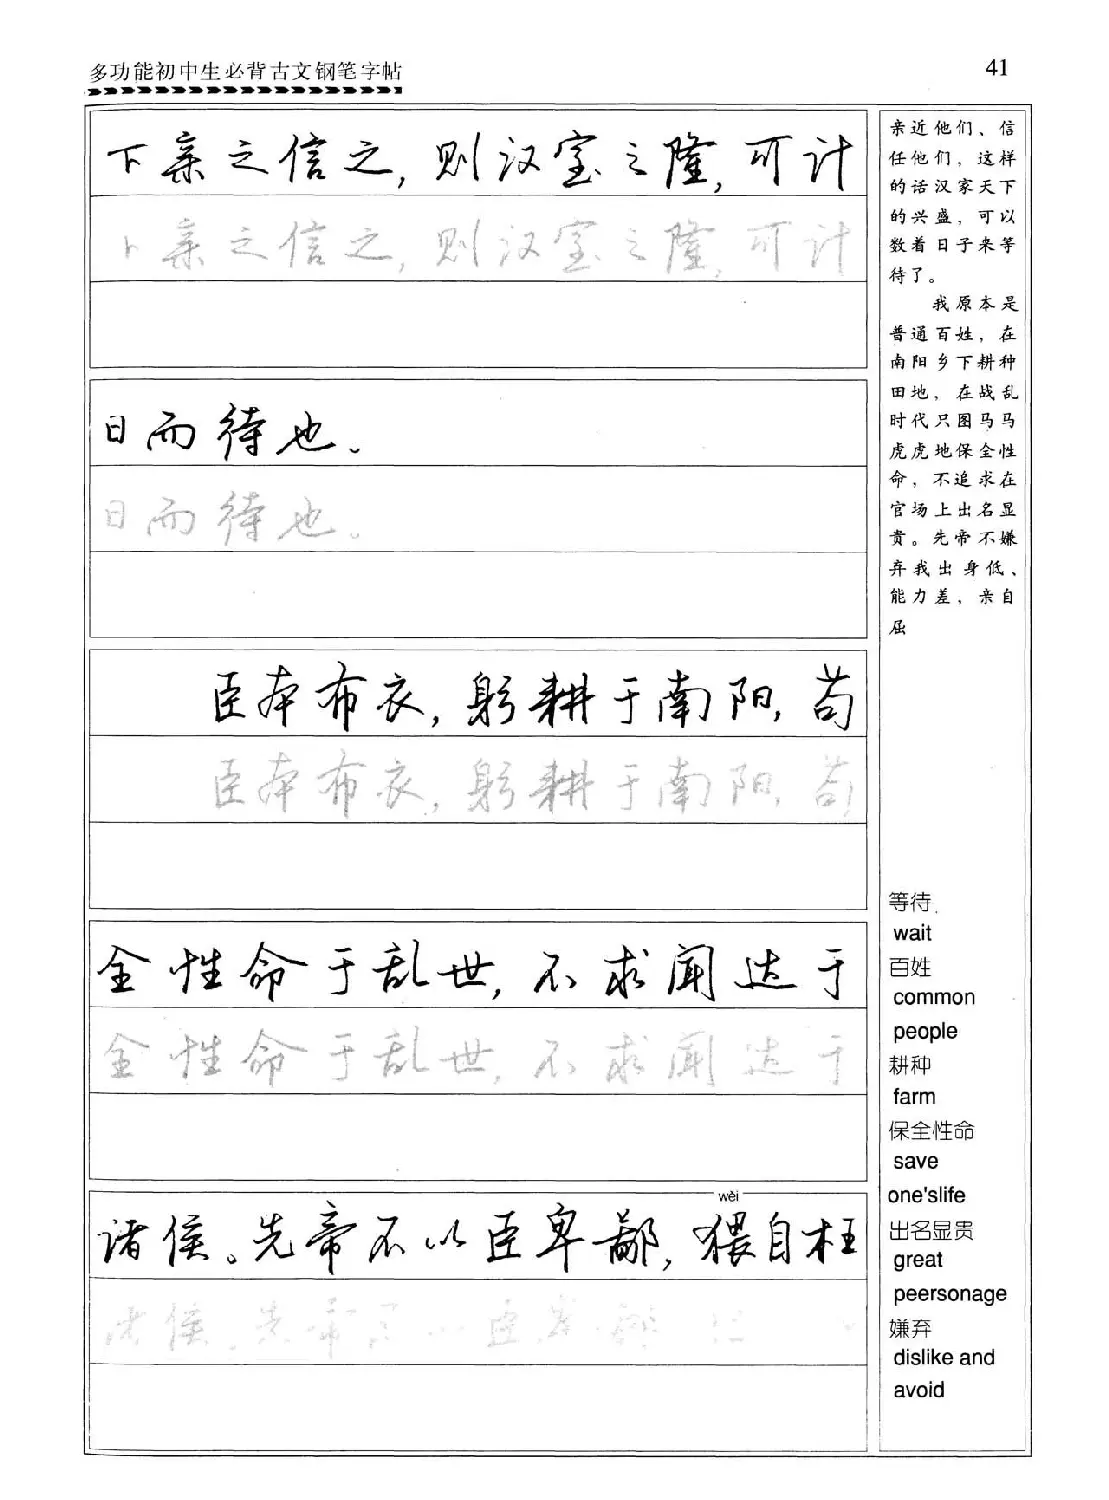 多功能初中生必背古文钢笔字帖
41
下亲之信之,则汉室之隆,可计
下亲之信之,则汉室之隆,可计
日而待也。
日而待也。
臣本布衣,躬耕于南阳,苟
臣本布衣,躬耕于南阳,苟
全性命于乱世,不求闻达于
全性命于乱世,不求闻达于
wèi
诸侯。先帝不以臣卑鄙,猥自枉
诸侯。先帝不以臣卑鄙
亲近他们、信
任他们,这样
的话汉家天下
的兴盛,可以
数着日子来等
待了。
我原本是
普通百姓,在
南阳乡下耕种
田地,在战乱
时代只图马马
虎虎地保全性
命,不追求在
官场上出名显
贵。先帝不嫌
弃我出身低、
能力差,亲自
屈
等待
wait
百姓
common
people
耕种
farm
保全性命
save
one'slife
出名显贵
great
peersonage
嫌弃
dislike and
avoid